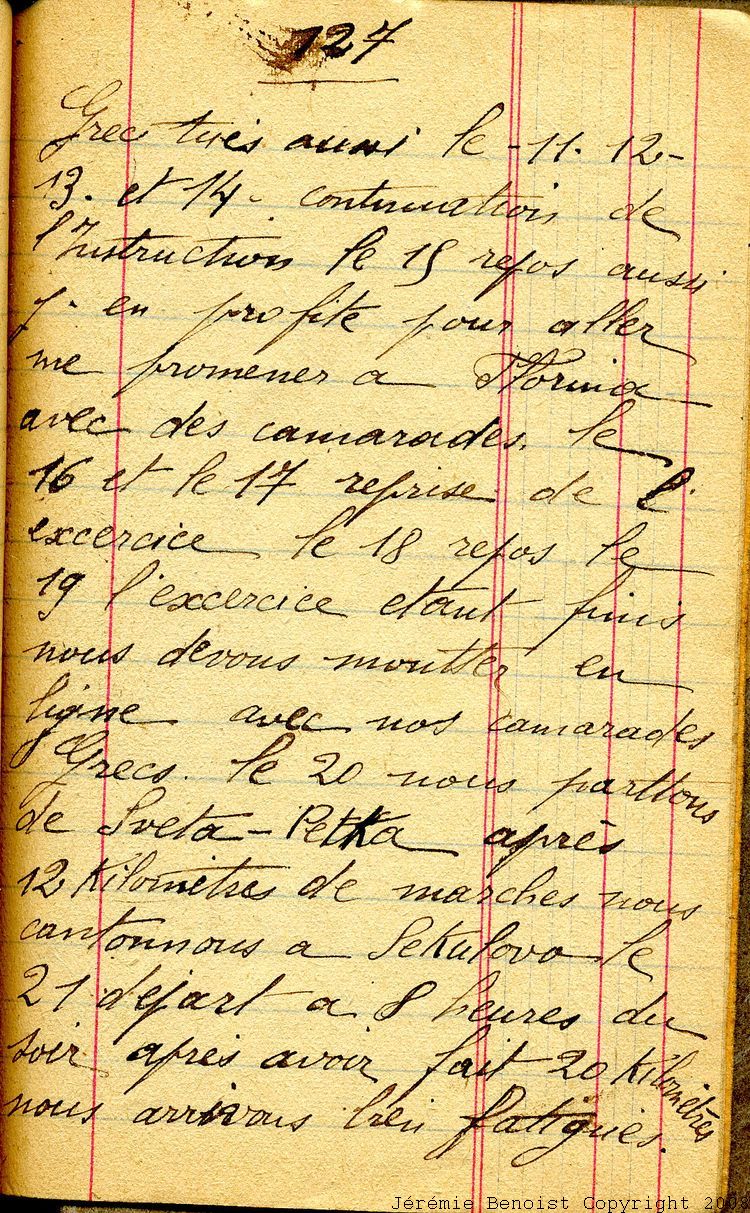 127
Grecs tués aussi le 11. 12-
13. et 14. continuation de
l'Instruction le 15 repos aussi
j. en profite pour aller
me promener a Florina
avec des camarades. le
16 et le 17 reprise de l'
excercice le 18 repos le
19 l'excercice etant finis
nous devons montter en
ligne avec nos camarades
Grecs. le 20 nous parttons
de Sveta-Petka après
12 Kilomètres de marches nous
cantonnons a Sekulovo le
21 départ a 8 heures du
soir après avoir fait 20 Kilomètres
nous arrivons bien fatigués.
Jérémie Benoist Copyright